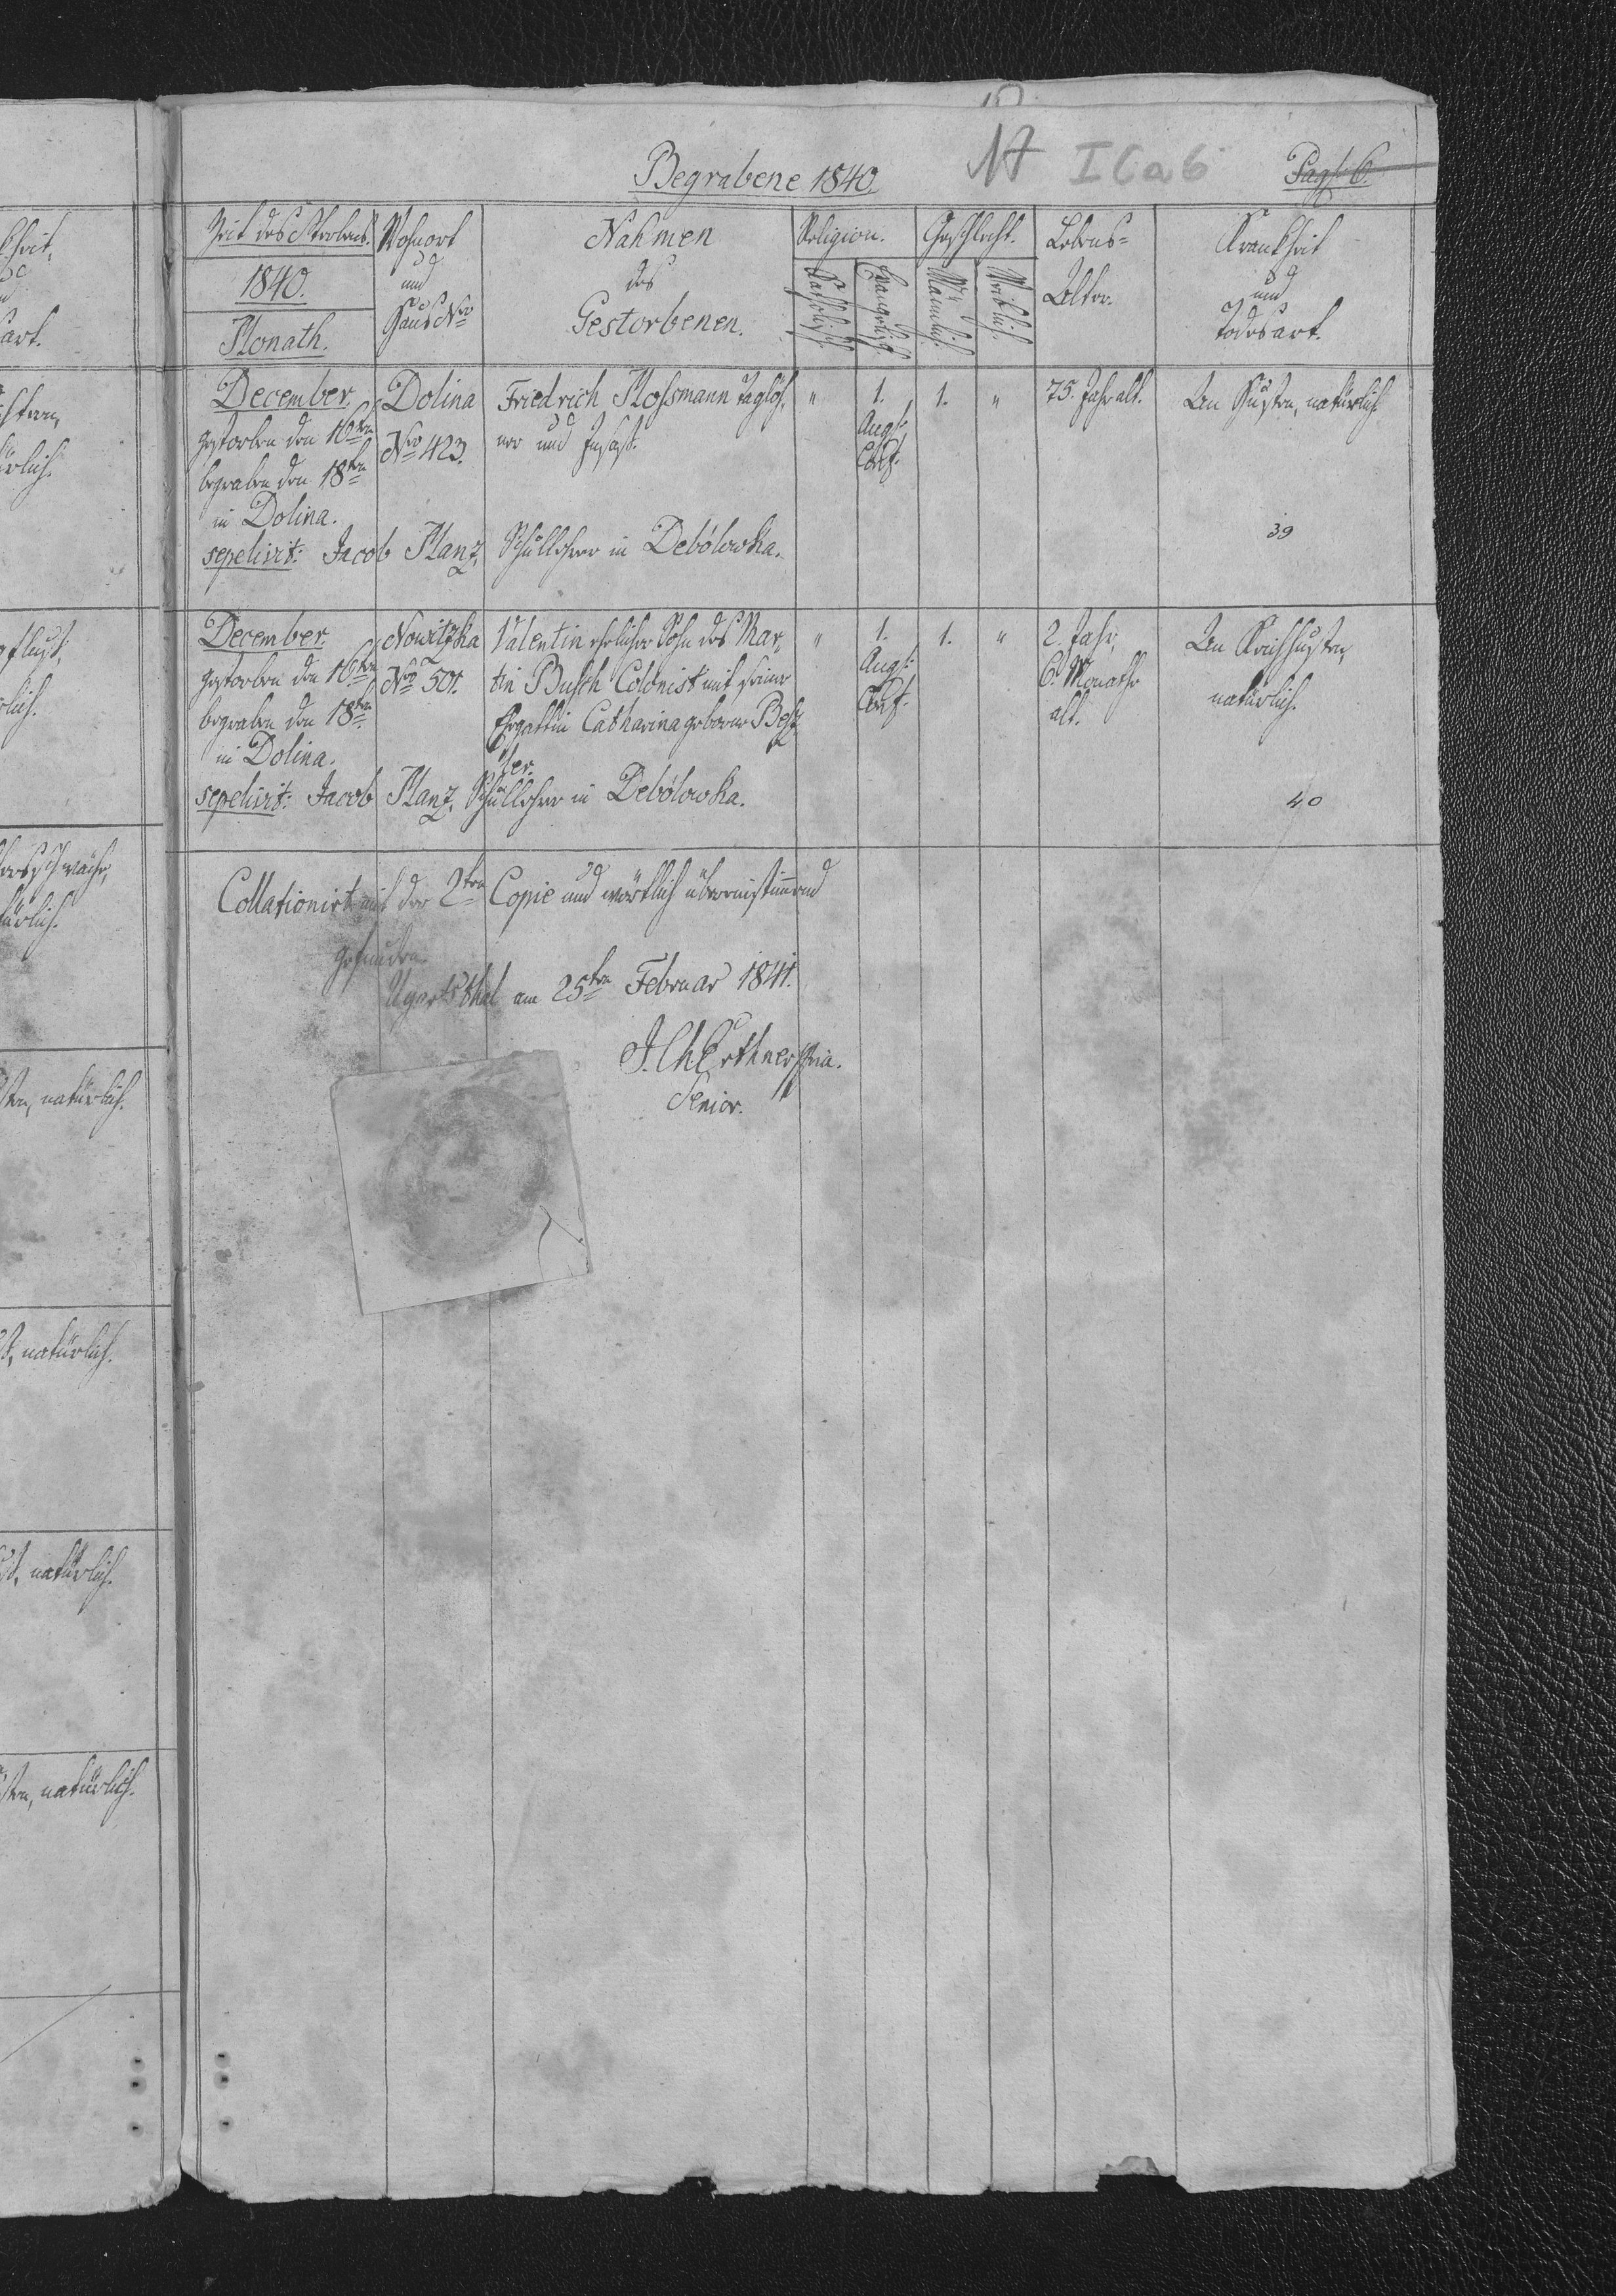 17 I C a 6
Begrabene 1840. Pag: 6
Zeit des Sterbens. Wohnort und Haus Nro Nahmen des Gestorbenen. Religion. Geschlecht. Lebens= Alter. Krankheit und Todesart.
1840.
Monath.
Katholisch. Evangelisch. Männlich. Weiblich.
December. Dolina Friedrich Mossmann Taglöh- " 1. 1. " 75. Jahr alt. An Husten, natürlich.
gestorben den 16ten Nro 423. ner und Insaß. Augs:
begraben den 18ten Conf.
in Dolina.
39
sepelivit: Jacob Manz, Schullehrer in Debólowka.
December. Nowitzka Valentin ehelicher Sohn des Mar- " 1. 1. " 2. Jahr, An Keichhusten,
gestorben den 16ten Nro 501. tin Busch Colonist mit seiner Augs: 6. Monathe natürlich.
begraben den 18ten Ehgattin Catharina geborne Conf. alt.
in Dolina.
sepelivit: Jacob Manz, Schullehrer in Debólowka. 40
Collationirt mit der 2ten Copie und wörtlich übereinstimmend
gefunden.
Ugartsthal am 25ten Februar 1841.
Senior.
natürlich.
natürlich.
natürlich.
natürlich.